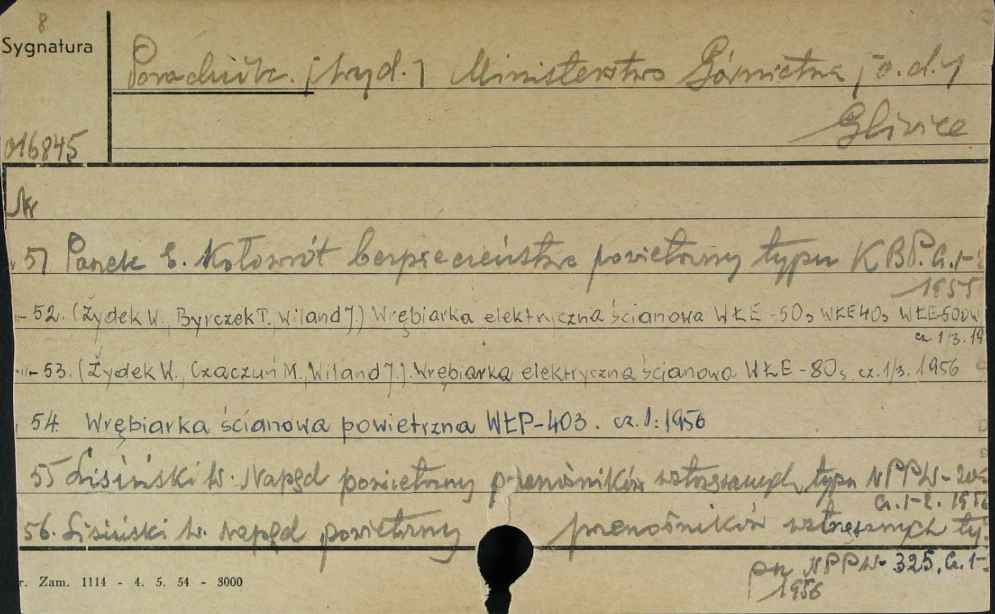 8
Sygnatura
Poradnik. [wyd.] Ministerstwo Górnictwa [o.d.]
Gliwice
016845
Nr
51 Panek E. Kołowrót bezpieczeństwa powietrzny typu KBP. Cz. 1-2
1955
52. (Żydek W., Byrczek T., Wiland J.) Wrębiarka elektryczna ścianowa WŁE-50s WŁE40s WŁE50dw
cz 1/3. 19
-"- 53. (Żydek W., Czaczuń M., Wiland J.). Wrębiarka elektryczna ścianowa WŁE-80s cz. 1/3. 1956
54. Wrębiarka ścianowa powietrzna WŁP-403. cz. 1: 1956
55 Lisiński W. Napęd powietrzny przenośników wstrząsanych, typu NPPW-205
Cz. 1-2. 1956
56. Lisiński W. napęd powietrzny przenośników wstrząsanych ty-
pu NPPW-325, Cz. 1-
1956
r. Zam. 1114 - 4. 5. 54 - 3000